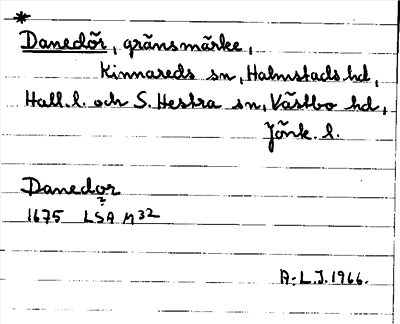 *
Danedör, gränsmärke,
Kinnareds sn, Halmstads hd,
Hall. l. och S. Hestra sn, Västbo hd,
Jönk. l.
Danedor
?
1675 LSA M32
A-L.J. 1966.